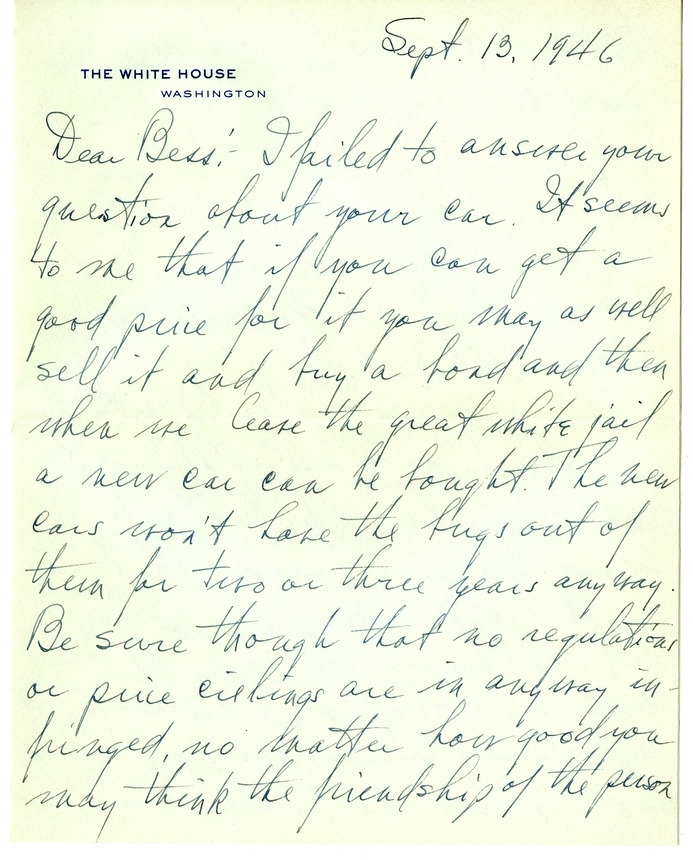 Sept. 13, 1946
THE WHITE HOUSE
WASHINGTON
Dear Bess:- I failed to answer your
question about your car. It seems
to me that if you can get a
good price for it you may as well
sell it and buy a bond and then
when we leave the great white jail
a new car can be bought. The new
cars won't have the bugs out of
them for two or three years anyway.
Be sure though that no regulations
or price cielings are in anyway in-
fringed, no matter how good you
may think the friendship of the person